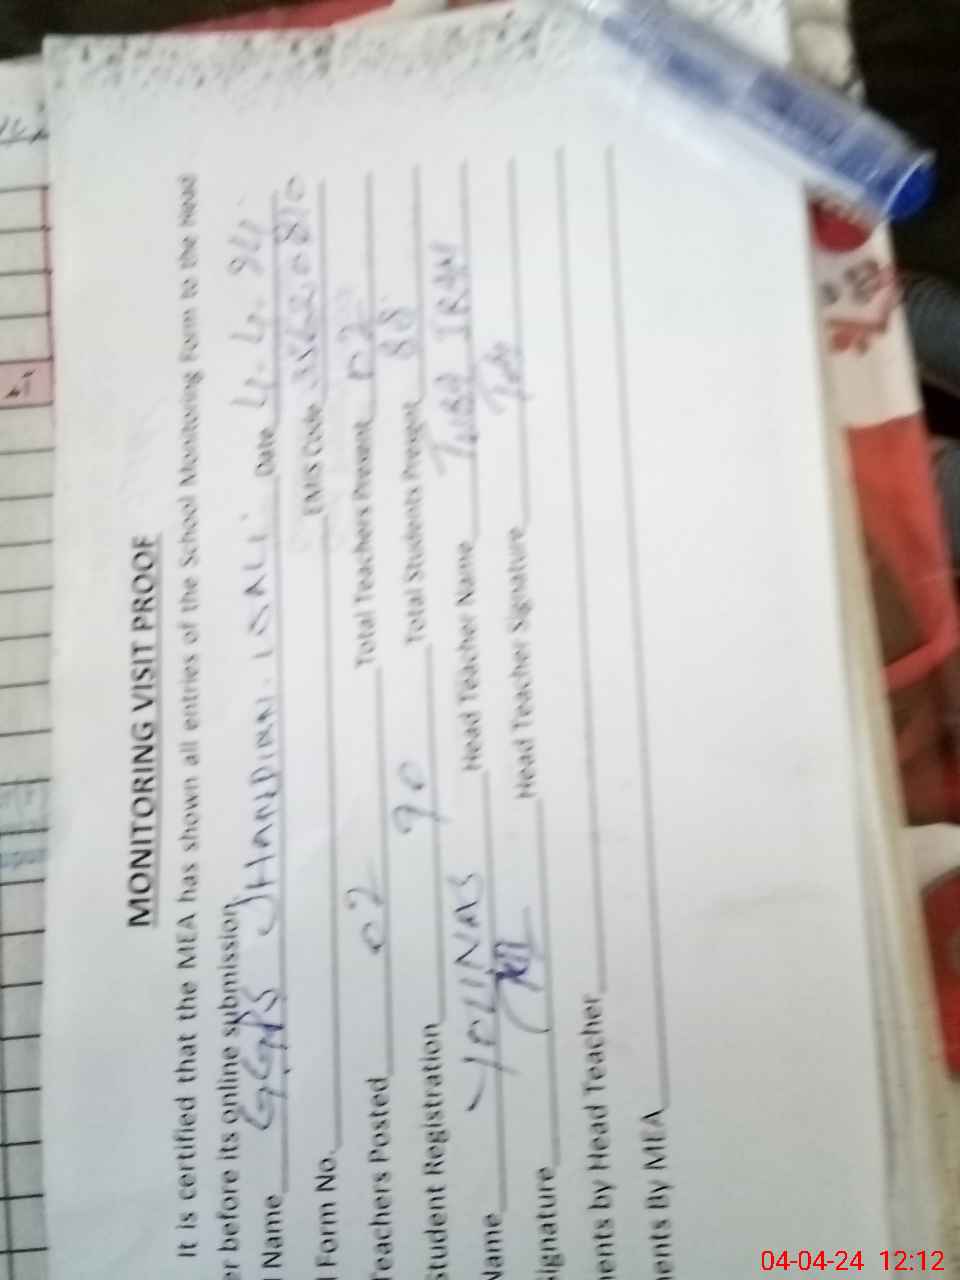 MONITORING VISIT PROOF
It is certified that the MEA has shown all entries of the School Monitoring Form to the Head
r before its online submission.
Name GGPS JHANDIAN. Date 4-4-24.
Form No. EMIS Code
Teachers Posted 02 Total Teachers Present 02
Student Registration 90 Total Students Present 88
Name YOUNAS Head Teacher Name TUBA IRAM
ignature Head Teacher Signature
ents by Head Teacher
ents By MEA
04-04-24 12:12